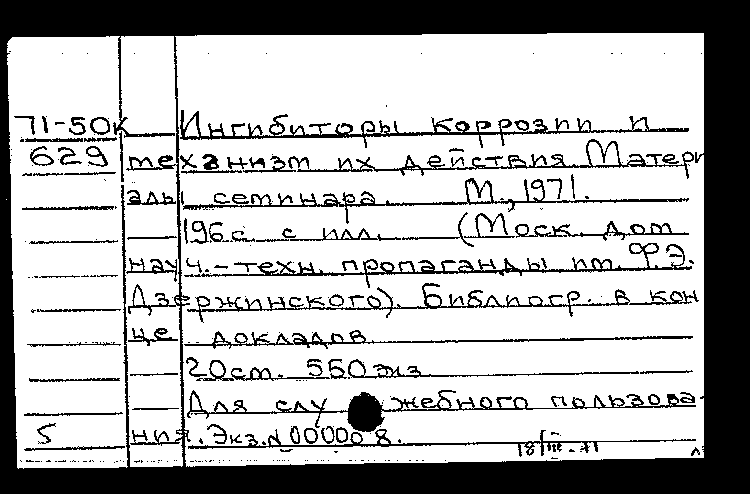 71-50к Ингибиторы коррозии и
629 механизм их действия Матери
алы семинара. М., 1971.
196с. с илл. (Моск. дом
науч.-техн. пропаганды им. Ф.Э.
Дзержинского). Библиогр. в кон
це докладов.
20см. 550 экз
Для служебного пользова-
5 ния. Экз.N 000008.
18/III-71